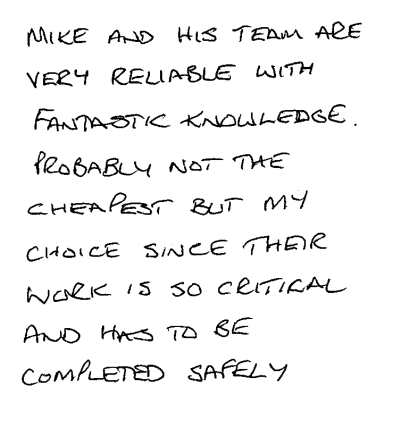 MIKE AND HIS TEAM ARE
VERY RELIABLE WITH
FANTASTIC KNOWLEDGE.
PROBABLY NOT THE
CHEAPEST BUT MY
CHOICE SINCE THEIR
WORK IS SO CRITICAL
AND HAS TO BE
COMPLETED SAFELY